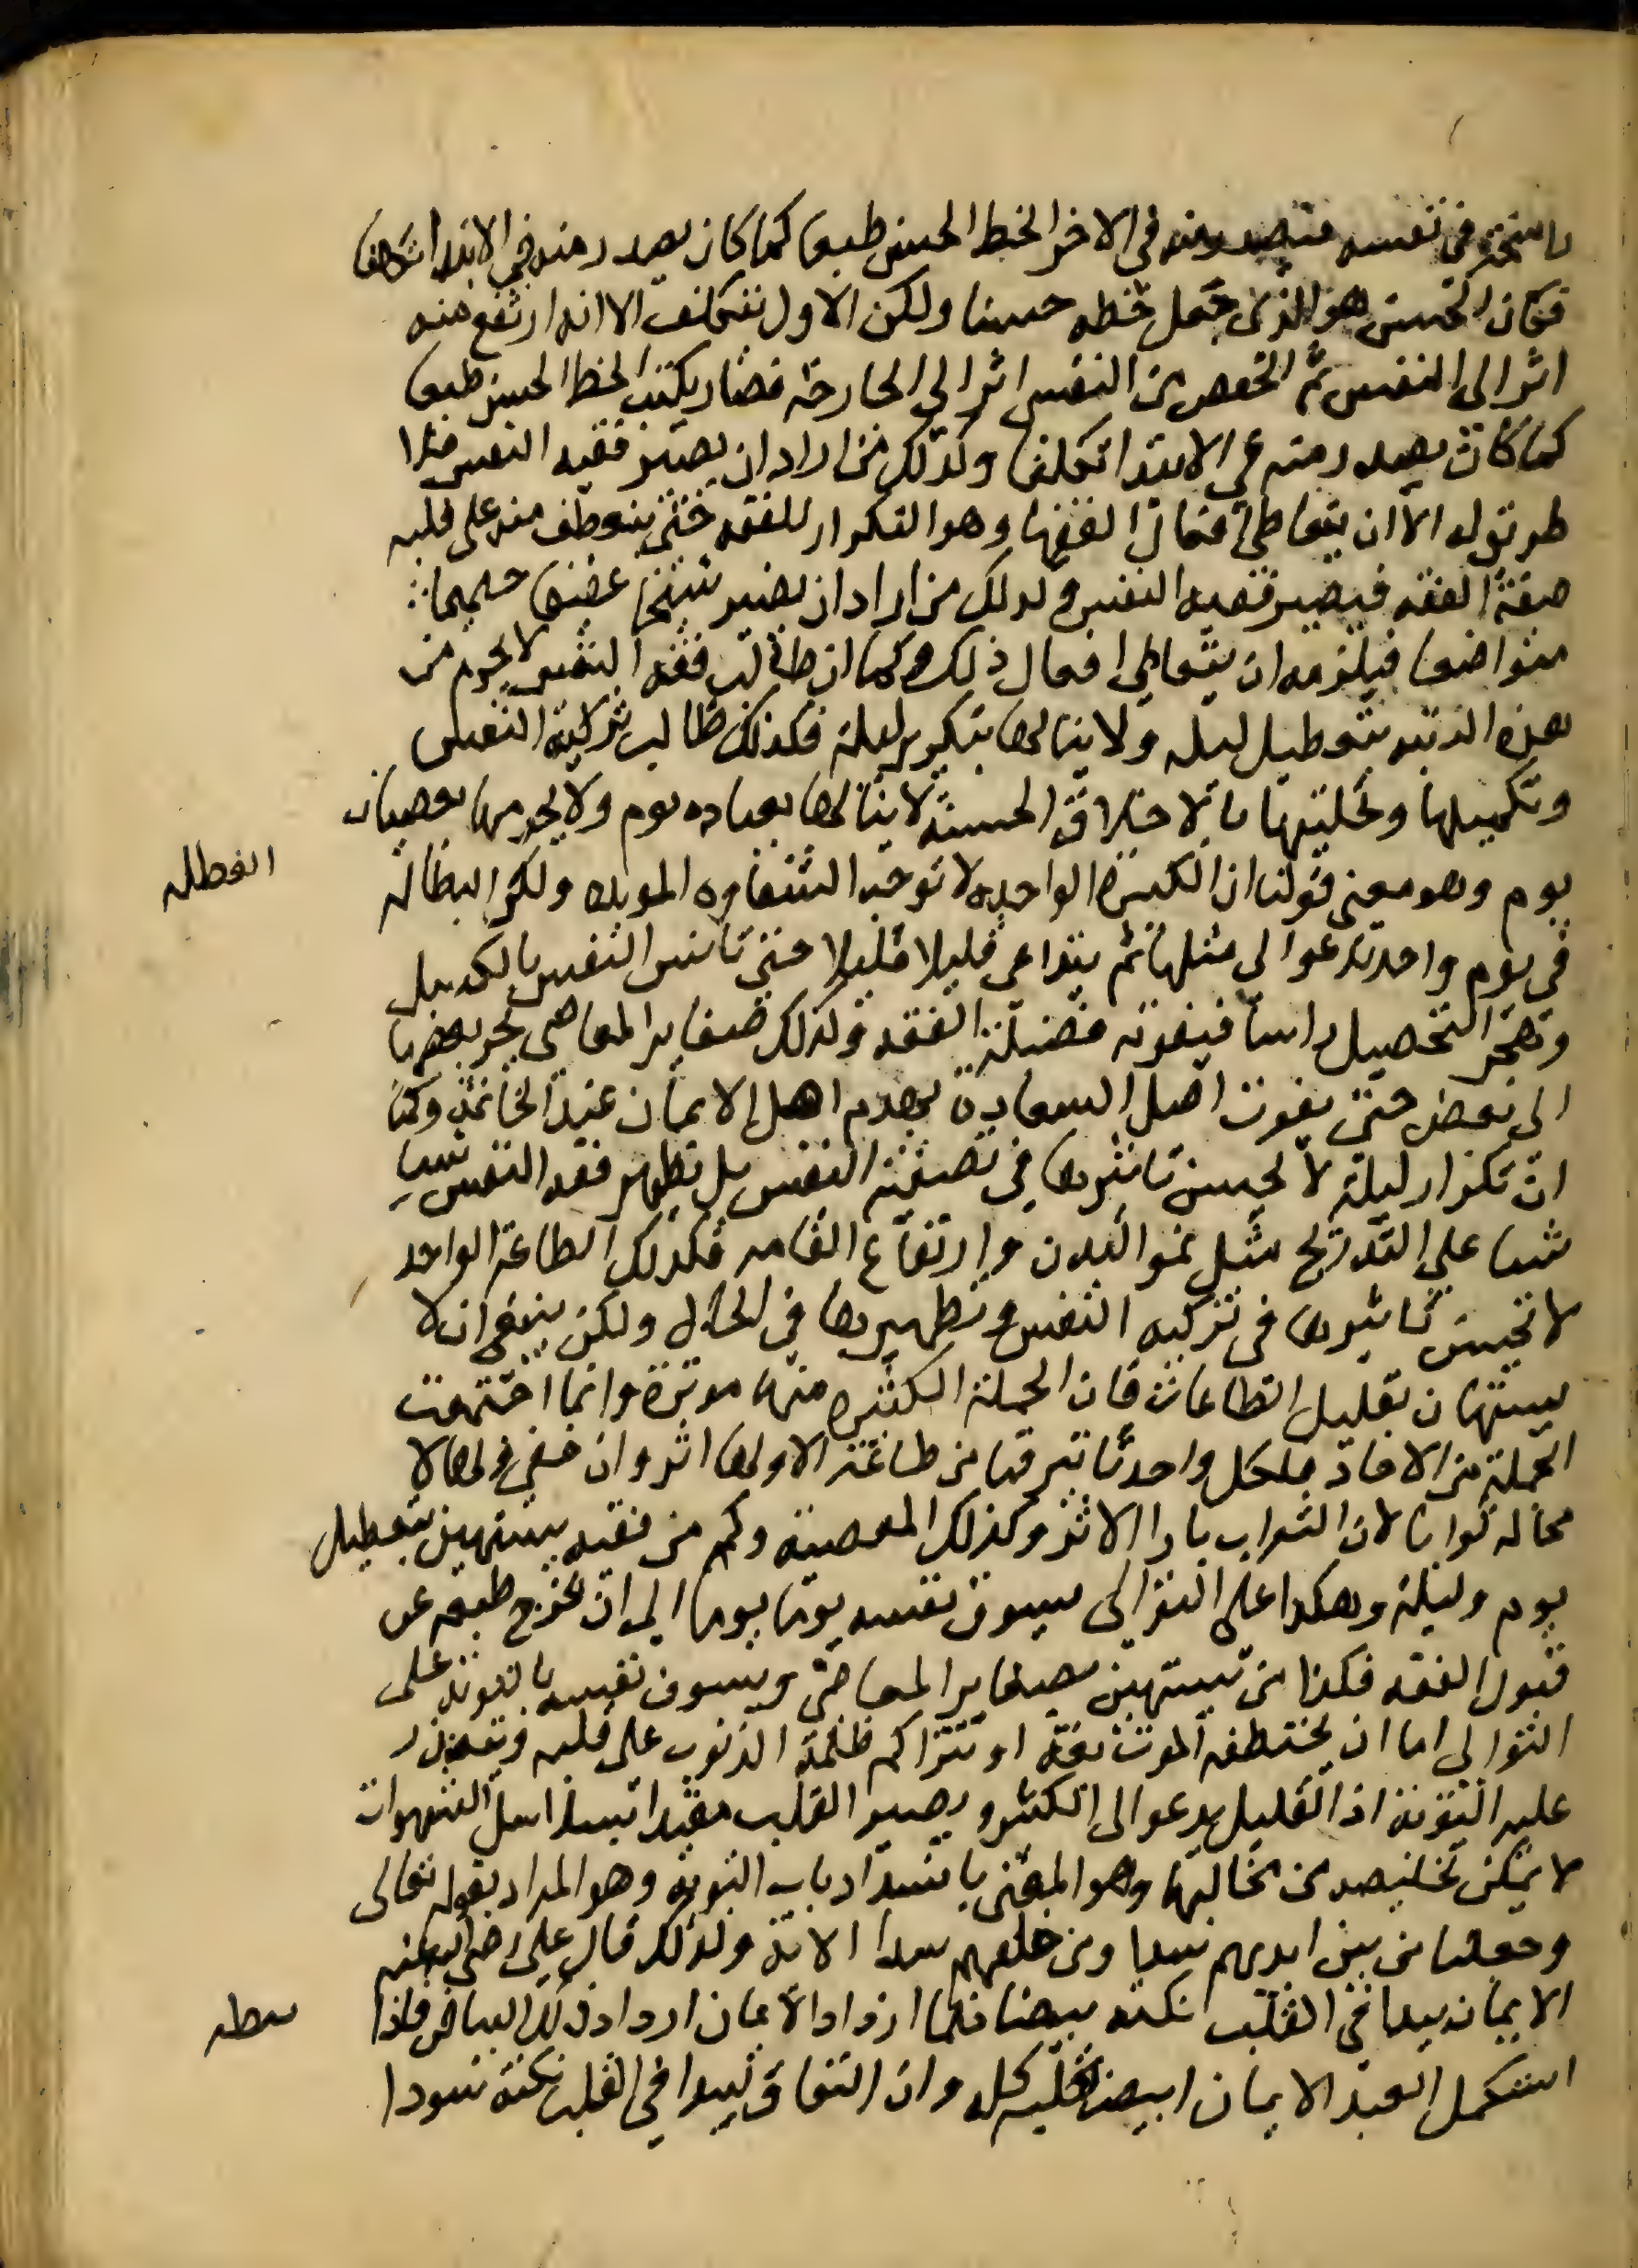 راسخة في نفسه فتصدر منه في الاخر الخط الحسن طبعا كما كان يصدر منه في الابتدا تكلفا
فكان الحسن هو الذي جعل خطه حسنا ولكن الاول بتكلف الا انه ارتفع منه
اثر الى النفس ثم انخفض من النفس اثر الى الجارحة فصار يكتب الخط الحسن طبعا
كما كان يصدر منه في الابتدا تكلفا وكذلك من اراد ان يصير فقيه النفس فلا
طريق له الا ان يتعاطى افعال الفقها وهو التكرار للفقه حتى ينعطف منه على قلبه
صفة الفقه فيصير فقيه النفس وكذلك من اراد ان يصير سخيا عفيفا حليما
متواضعا فيلزمه ان يتعاطى افعال ذلك وكما ان طالب فقه النفس لا يحرم من
هذه الرتبه بتعطيل ليله ولا ينالها بتكرير ليلة فكذلك طالب تزكية النفس
وتكميلها وتحليتها بالاخلاق الحسنة لا ينالها بعباده يوم ولا يحرمها بعصيان
يوم وهو معنى قولنا ان الكبيرة الواحده لا توجب الشقاوه الموبده ولكن البطاله
العطله
في يوم واحد تدعوا الى مثلها ثم يتداعى قليلا قليلا حتى تانس النفس بالكسل
وتهجر التحصيل راسا فيفوته فضيلة الفقه وكذلك صغاير المعاصي يجر بعضها
الى بعض حتى يفوت اصل السعادة بهدم اصل الايمان عند الخاتمة وكما
ان تكرار ليلة لا يحس تاثيرها في تصفية النفس بل يظهر فقه النفس شيا
شيا على التدريج مثل نمو البدن وارتفاع القامه فكذلك الطاعة الواحد
لا تحس تاثيرها في تزكيه النفس وتطهيرها في الحال ولكن ينبغي ان لا
يستهان بقليل الطاعات فان الجملة الكثيره منها موثرة وانما اجتمعت
الجملة من الاحاد فلكل واحد تاثير فما من طاعة الا ولها اثر وان خفي فلها لا
محاله ثوابا لان الثواب بازا الاثر وكذلك المعصية وكم من فقيه يستهين بتعطيل
يوم وليلة وهكذا على التوالي يسوف نفسه يوما يوما الى ان يخرج طبعه عن
قبول الفقه فكذا من يستهين بصغاير المعاصي ويسوف نفسه بالتوبة على
التوالي اما ان يختطفه الموت بغتة او تتراكم ظلمة الذنوب على قلبه ويتعذر
عليه التوبة اذ القليل يدعوا الى الكثير ويصير القلب مقيدا بسلاسل الشهوات
لا يمكن تخليصه من مخالبها وهو المعنى بانسداد باب التوبه وهو المراد بقوله تعالى
وجعلنا من بين ايديهم سدا ومن خلفهم سدا الاية ولذلك قال علي رضي الله عنه
الايمان يبدا في القلب نكته بيضا فكلما ازداد الايمان ازداد ذلك البياض فاذا
استكمل العبد الايمان ابيض القلب كله وان النفاق ليبدا في القلب نكتة سودا